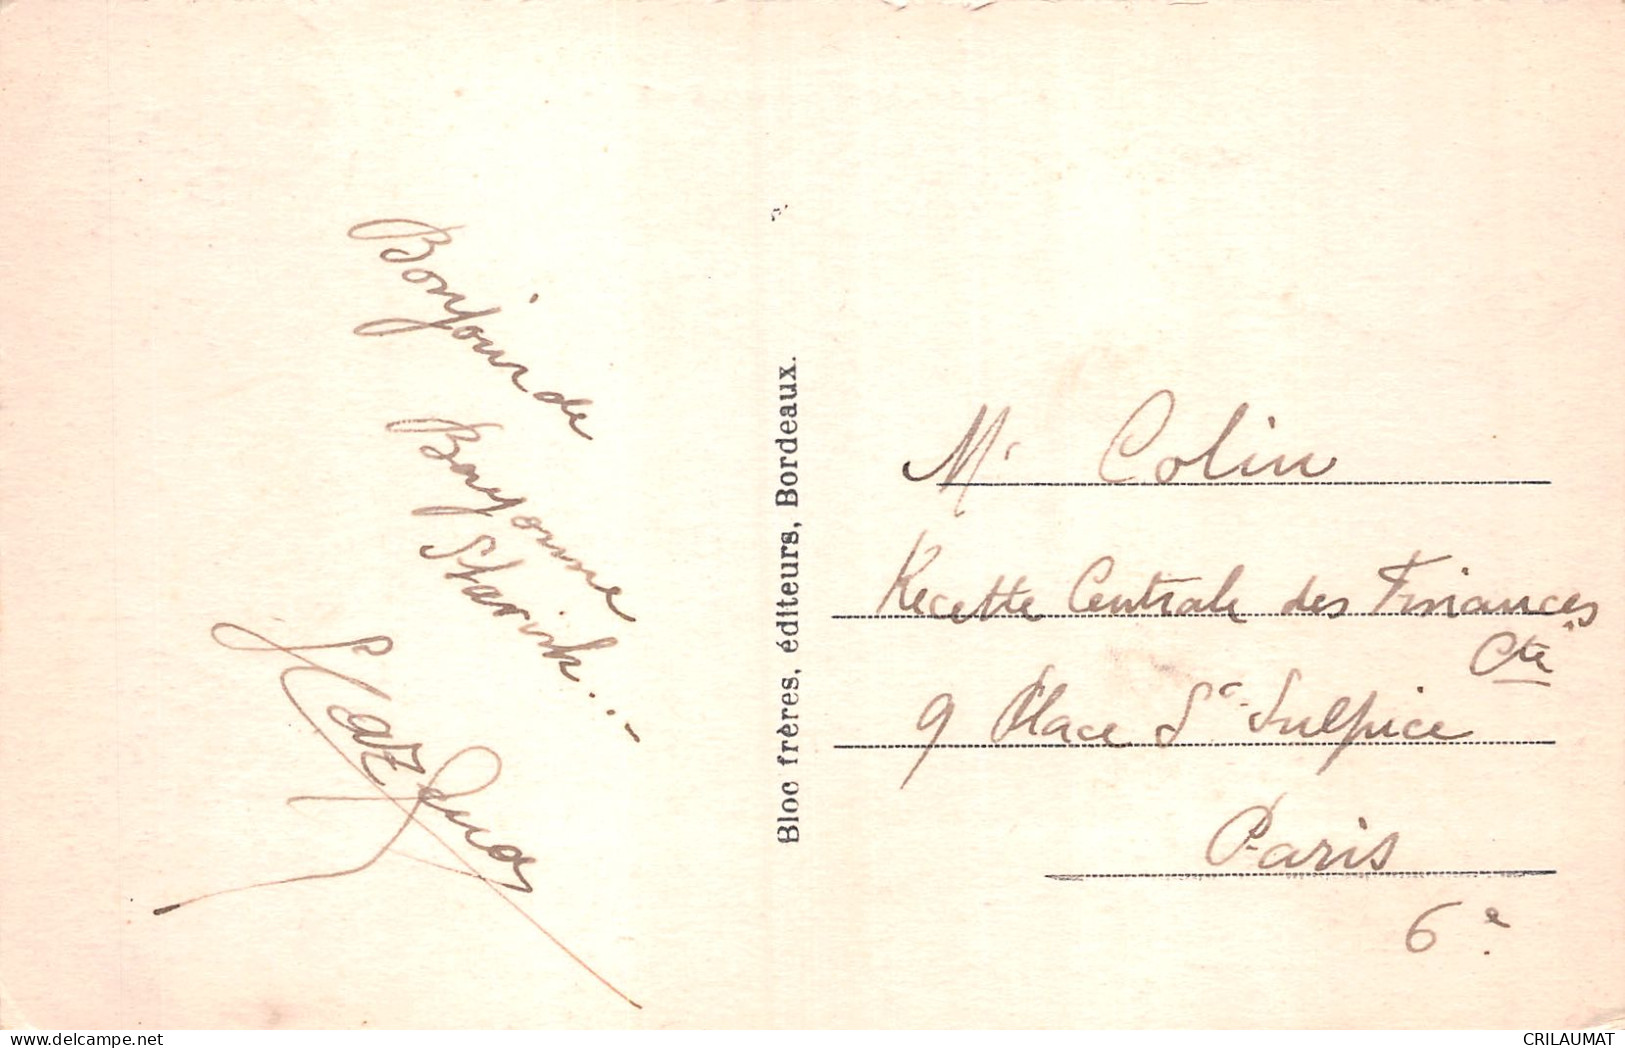 Bonjour de
Bayonne
Bloc frères, éditeurs, Bordeaux.
Mr Colin
Recette Centrale des Finances
Cté
9 Place St Sulpice
Paris
6e
delcampe.net
CRILAUMAT